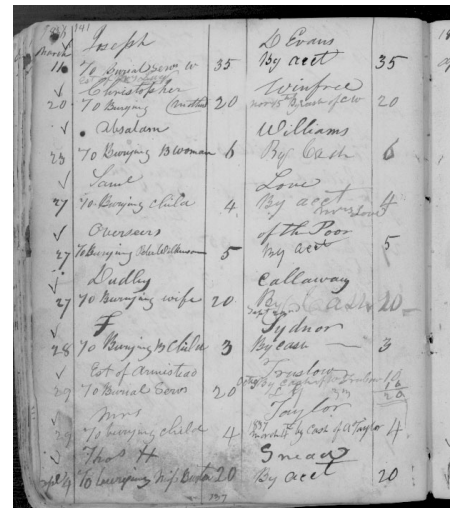 March
141
Joseph
D Evans
11 To Burial 35
By acct 35
Christopher
Winfree
20 To Burying 20
20
Absalam
Williams
23 To Burying B woman 6
By Cash 6
Saml
Love
27 To Burying child 4
By acct 4
Mrs Love
Overseers
of the Poor
27 To Burying 5
By acct 5
Dudley
Callaway
27 To Burying wife 20
By Cash 20
F
Sydnor
28 To Burying B Child 3
By cash 3
Est of Armistead
Truslow
29 To Burial 20
20
Mrs
Taylor
29 To burying child 4
by Cash of A Taylor 4
Thos H
Snead
To burying 20
By acct 20